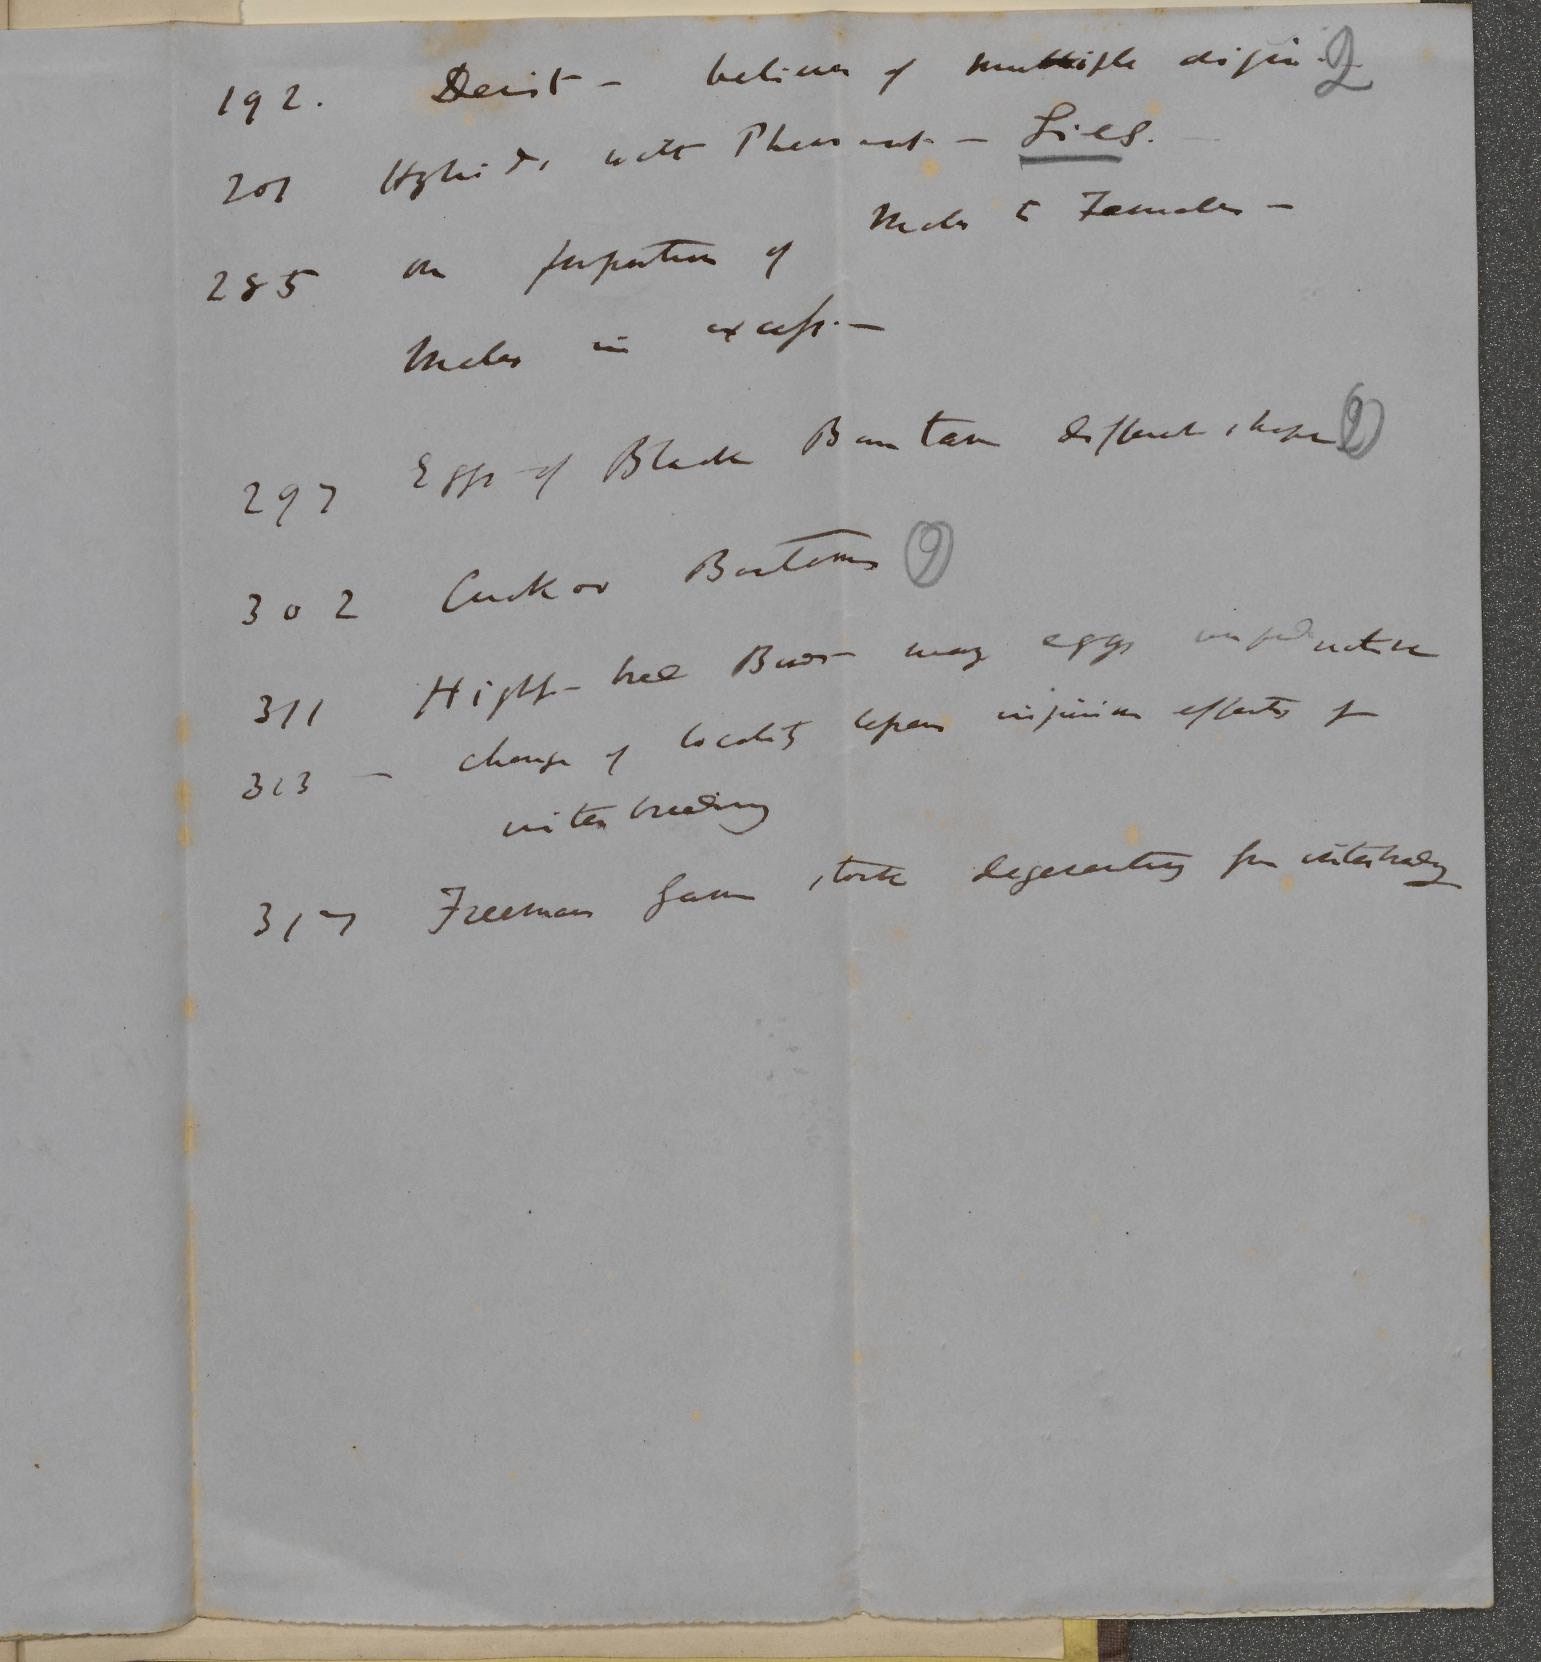 192. Dewitt — believer of multiple origin 2
201 Hybrids with Pheasant — Lies.
285 On proportion of Males to Females —
Males in excess. —
297 Eggs of Black Bantam different shape 9
302 Cuckoo Bantams 9
311 High-bred Birds many eggs unproductive
313 — change of locality lessens injurious effects of
interbreeding
317 Freeman Game stock degenerating from interbreeding